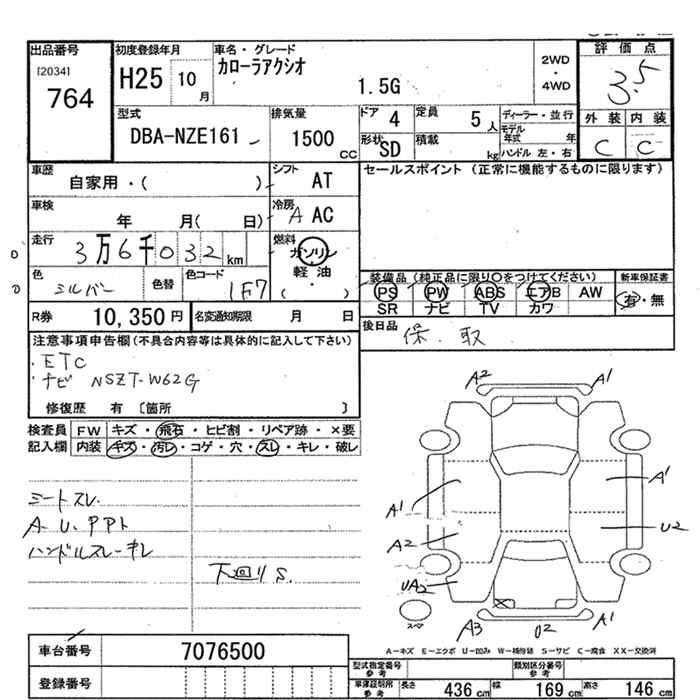 出品番号 [2034] 764
初度登録年月 H25 10月
車名・グレード カローラアクシオ 1.5G
2WD・4WD
評価点 3.5
外装 C 内装 C
型式 DBA-NZE161
排気量 1500 CC
ドア 4
形状 SD
定員 5人
積載 kg
ディーラー・並行
モデル年式 年
ハンドル 左・右
車歴 自家用・( )
シフト AT
車検 年 月( 日)
冷房 A AC
走行 3万6千032km
燃料 ガソリン・軽油・( )
色 シルバー 色替
色コード 1F7
R券 10,350円
名変通知期限 月 日
セールスポイント (正常に機能するものに限ります)
装備品 (純正品に限り○をつけてください)
PS PW ABS エアB AW
SR ナビ TV カワ
新車保証書 有・無
後日品 保、取
注意事項申告欄(不具合内容等は具体的に記入して下さい)
・ETC
・ナビ NSZT-W62G
修復歴 有 〔箇所 〕
検査員記入欄
FW キズ・飛石・ヒビ割・リペア跡・×要
内装 キズ・汚レ・コゲ・穴・スレ・キレ・破レ
シートスレ
A.U.PPト
ハンドルスレ・キレ
下回りS.
A2 A1
A1 A1
A2 U2
UA2
スペア
A3 U2 A1
A-キズ E-エクボ U-凹み W-補修跡 S-サビ C-腐食 XX-交換済
車台番号 7076500
登録番号
型式指定番号 参考
類別区分番号 参考
車庫証明用 参考 長さ 436cm 幅 169cm 高さ 146cm